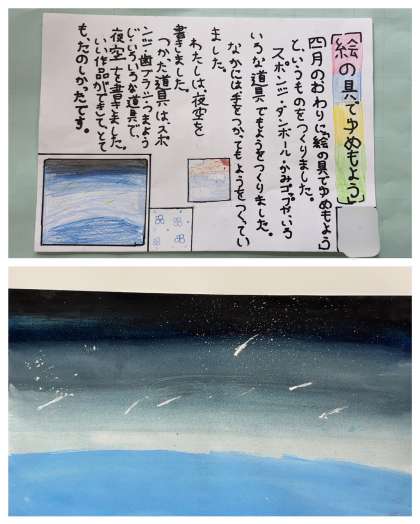 「絵の具でゆめもよう」
四月のおわりに「絵の具でゆめもよう」
というものをつくりました。
スポンジ・ダンボール・かみコップや、いろ
いろな道具でもようをつくりました。
なかには手をつかってもようをつくってい
ました。
わたしは、夜空を
書きました。
つかった道具は、スポ
ンジ・歯ブラシ・つまよう
じ・いろいろな道具で、
夜空を書きました。
いい作品ができて、とて
も、たのしかったです。